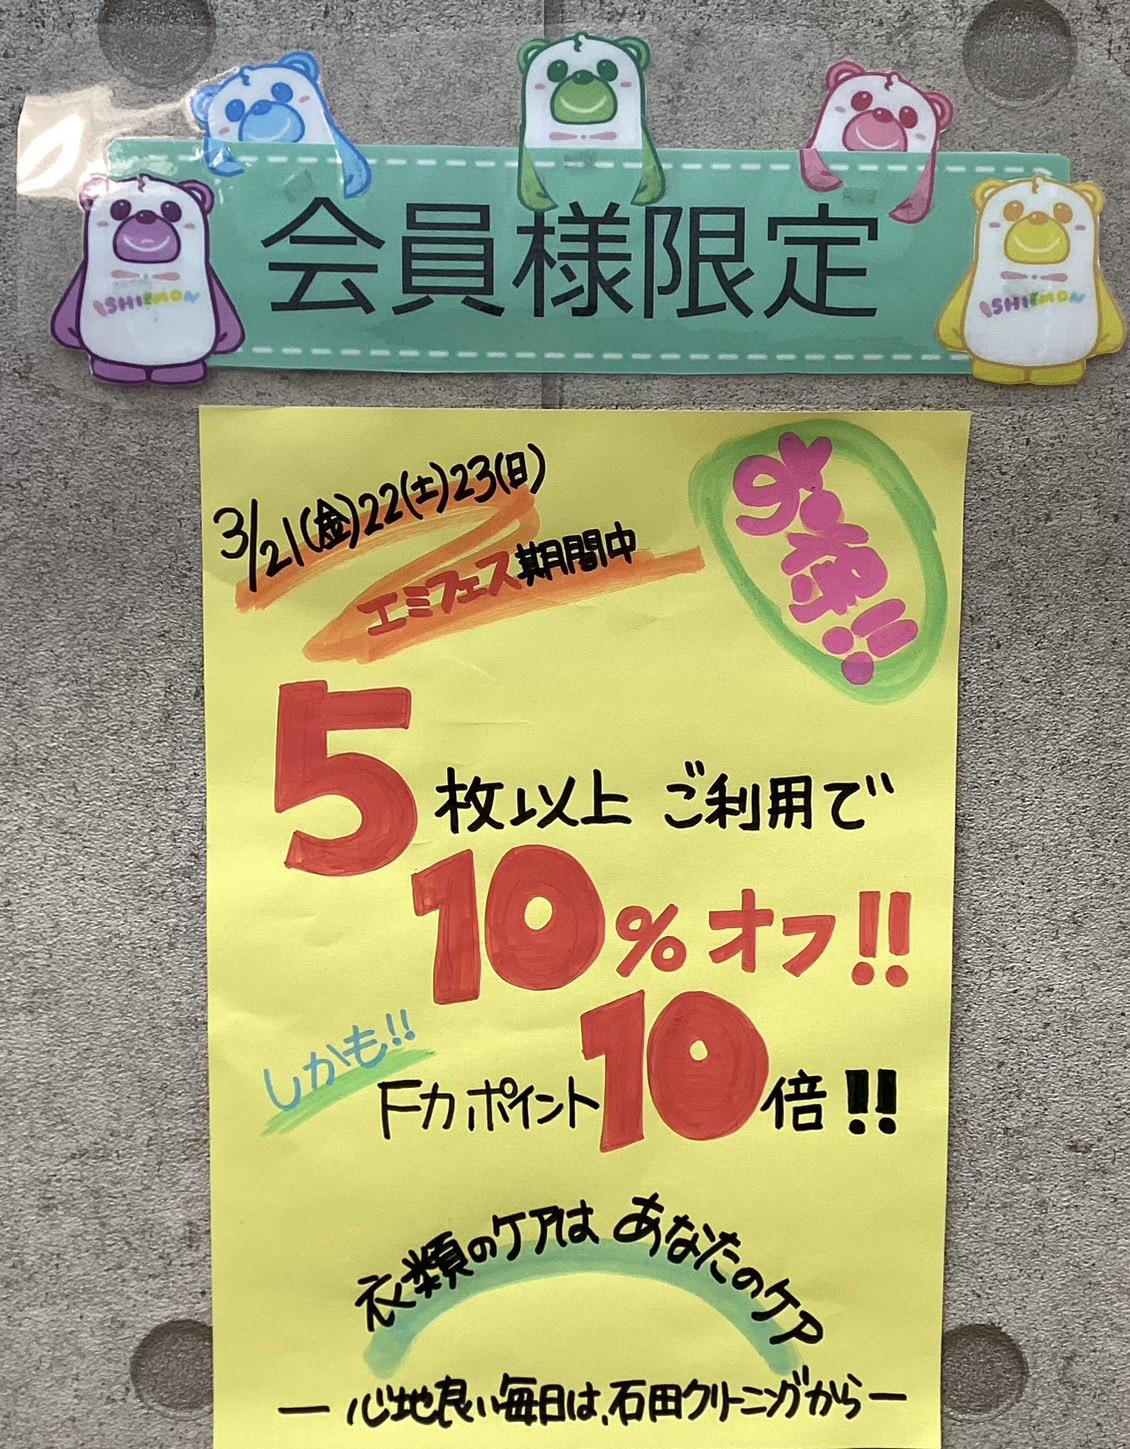 会員様限定
ISHIEMON
ISHIEMON
3/21(金)22(土)23(日)
エミフェス期間中
お得!!
5枚以上 ご利用で
10%オフ!!
しかも!!
Fカポイント10倍!!
衣類のケアは あなたのケア
―心地良い毎日は、石田クリーニングから―